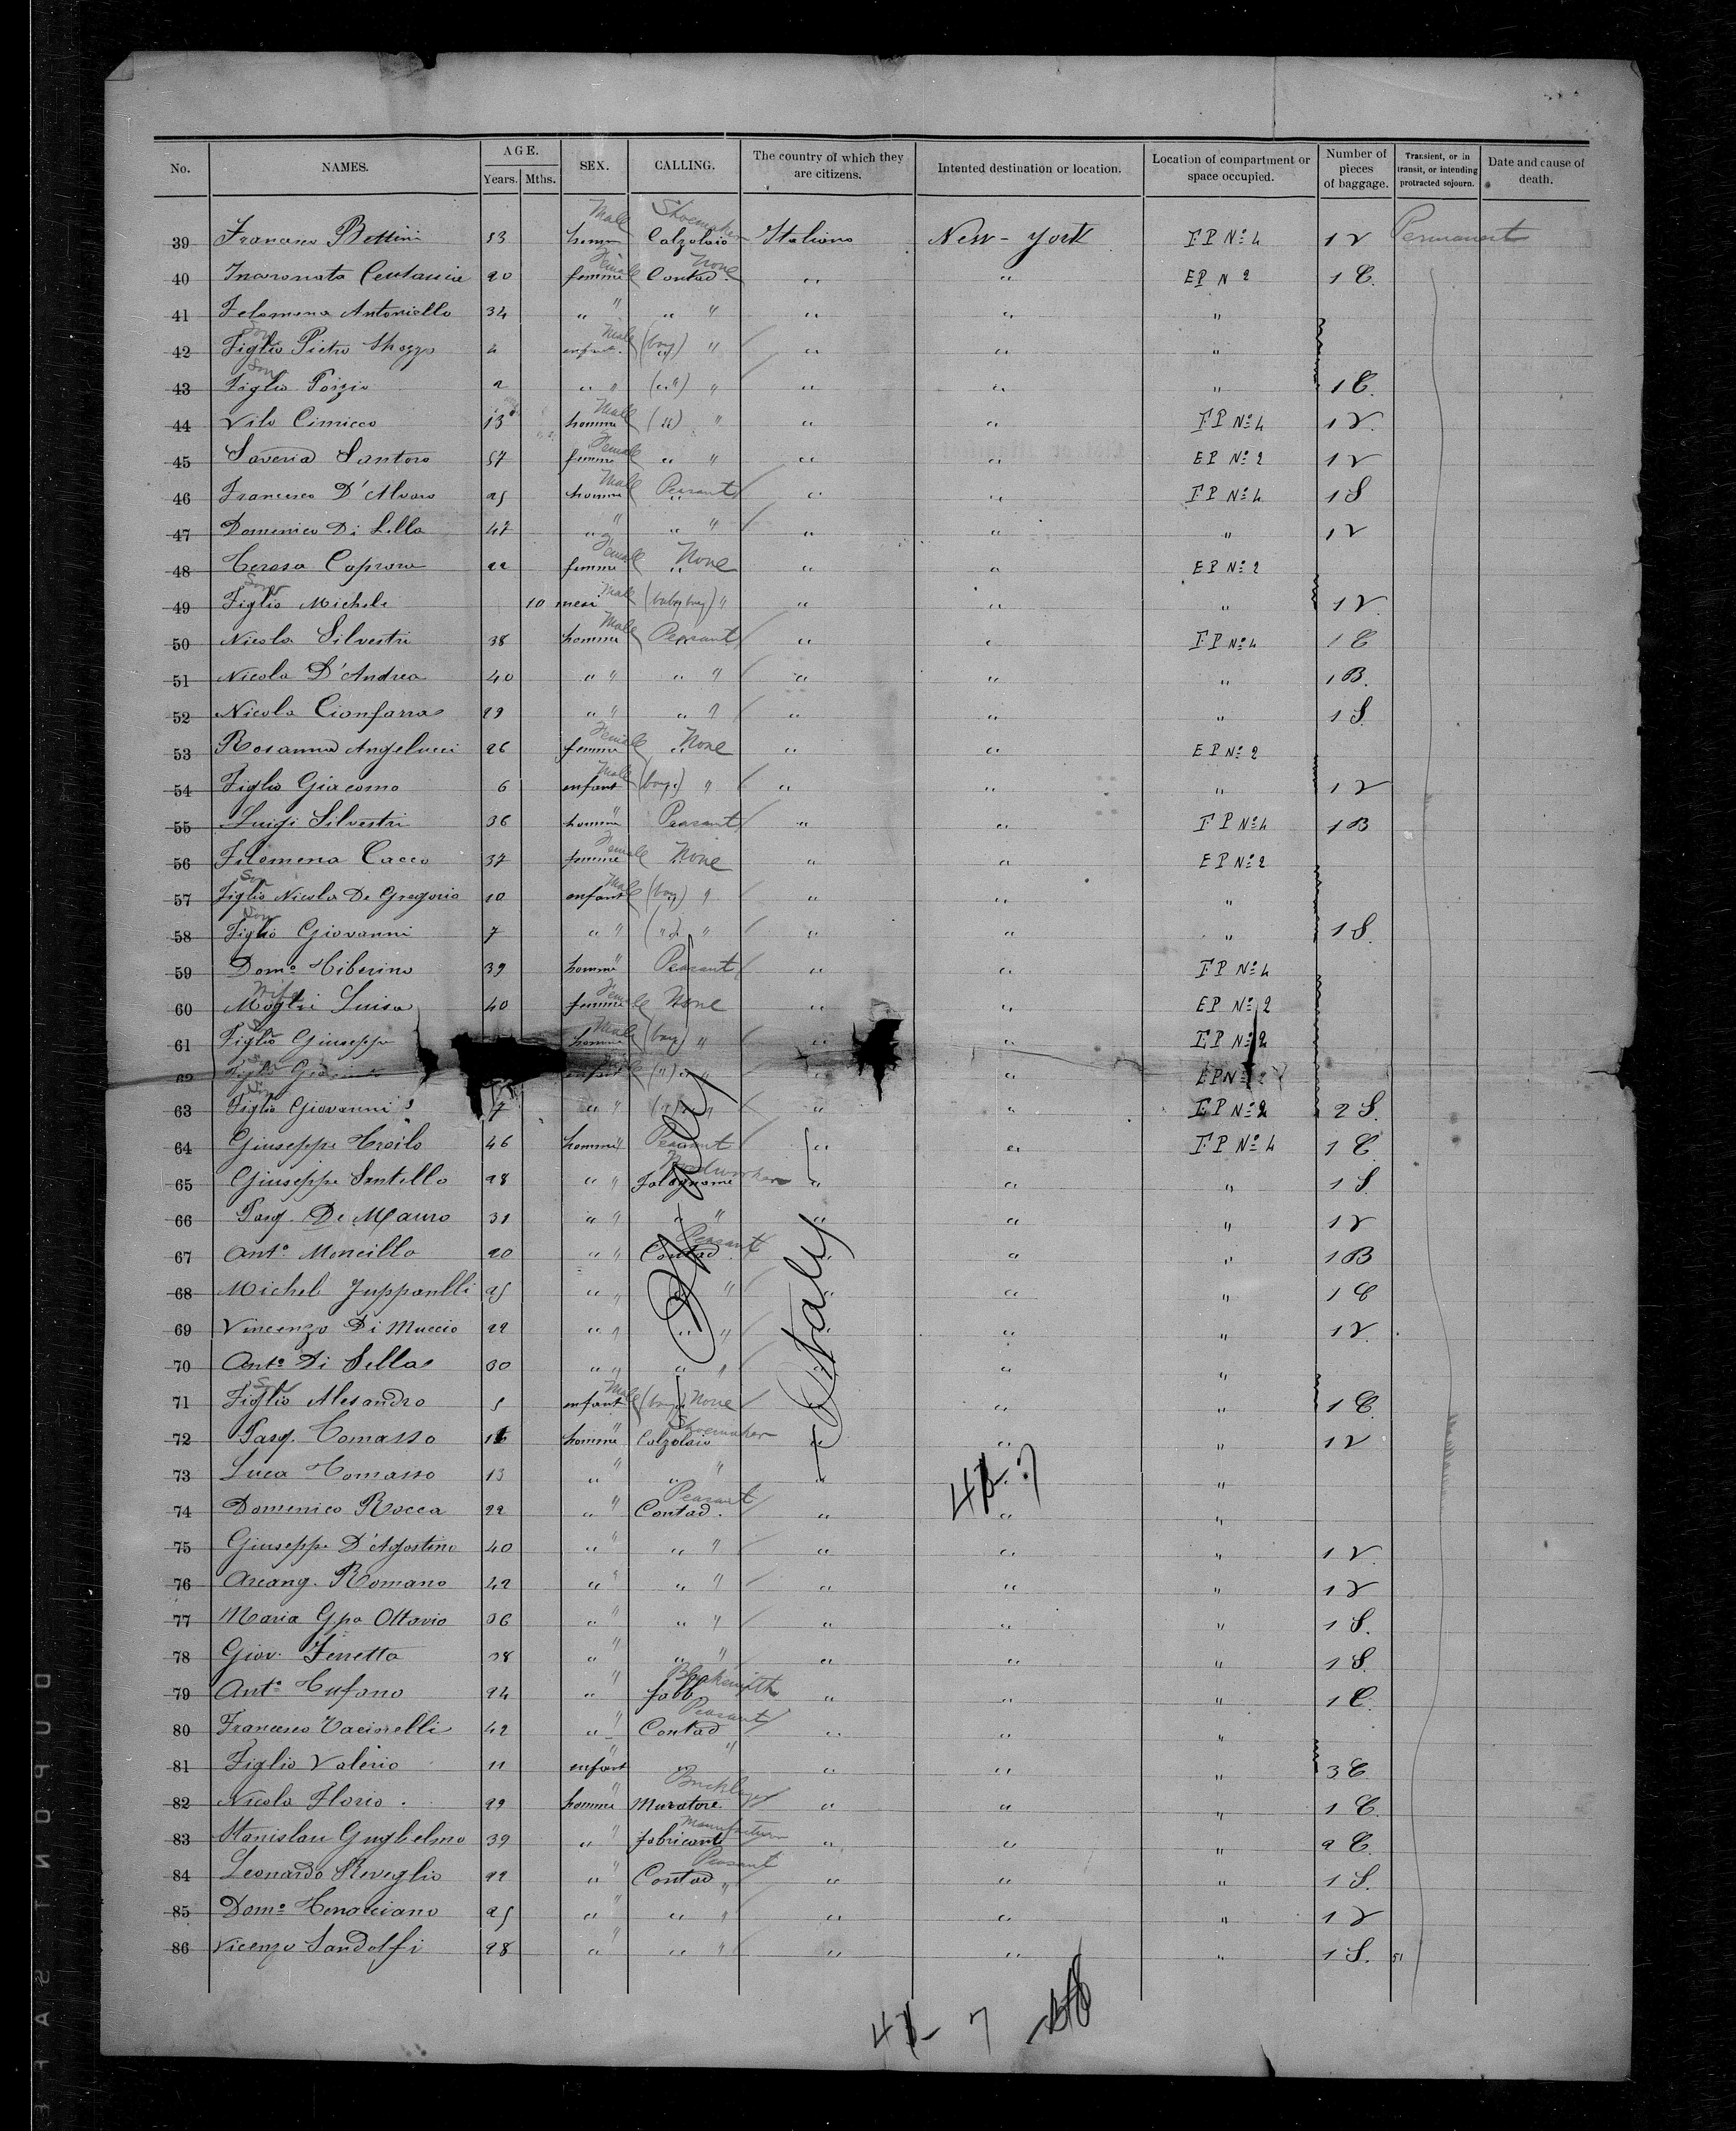 No. NAMES. AGE. Years. Mths. SEX. CALLING. The country of which they are citizens. Intented destination or location. Location of compartment or space occupied. Number of pieces of baggage. Transient, or in transit, or intending protracted sojourn. Date and cause of death.
39 Francesco Bettini 33 homme Male Calzolaio Shoemaker Italiano New-York FP No 4 1 V Permanent
40 Incoronata 20 femme Female Contad. None " " EP N 2 1 C.
41 Filomena Antoniello 34 " " " " " " "
42 Figlio Son Pietro 4 enfant. Male (boy) " " " "
43 Figlio Son 2 " " (" ") " " " " 1 C.
44 Vito Cimicco 13 homme Male (") " " " FP No 4 1 V.
45 Saveria Santoro 57 femme Female " " " " EP No 2 1 V
46 Francesco D'Alvaro 25 homme Male " Peasant " " FP No 4 1 S
47 Domenico Di Lella 47 " " " " " " " 1 V
48 Teresa Caprara 22 femme Female " None " " EP No 2
49 Figlio Son Michele 10 mesi Male (baby boy) " " " " 1 V.
50 Nicola Silvestri 38 homme Male Peasant " " FP No 4 1 C
51 Nicola D'Andrea 40 " " " " " " " 1 B.
52 Nicola Cionfarra 29 " " " " " " " 1 S.
53 Rosanna Angelucci 26 femme Female " None " " EP No 2
54 Figlio Giacomo 6 enfant Male (boy) " " " " 1 V
55 Luigi Silvestri 36 homme " Peasant " " FP No 4 1 B
56 Filomena Cacco 37 femme Female None " " EP No 2
57 Figlio Son Nicola De Gregorio 10 enfant Male (boy) " " " "
58 Figlio Son Giovanni 7 " " (") " " " " 1 S.
59 Domo Tiberino 39 homme " Peasant " " FP No 4
60 Moglie Wife Luisa 40 femme Female None " " EP No 2
61 Figlio Giuseppe homme Male (boy) " " " EP No 2
62 Figlio enfant (") " " " " EP No 2
63 Figlio Son Giovanni 7 " " (") " " " EP No 2 2 S.
64 Giuseppe Troilo 46 homme " Peasant " " FP No 4 1 C.
65 Giuseppe Santella 28 " " Falegname Woodworker " " " 1 S.
66 Pasq. De Mauro 31 " " " " " " " 1 V
67 Anto. Moncillo 20 " " Contad. Peasant " " " 1 B
68 Michele 25 " " " " " " " 1 C
69 Vincenzo Di Muccio 22 " " " " " " " 1 V.
70 Anto. Di Lella 30 " " " " " " "
71 Figlio Son Alesandro 5 enfant Male (boy) None " " " 1 C.
72 Pasq. Tomasso homme " Calzolaio Shoemaker " " " 1 V
73 Luca Tomasso 13 " " " " " " "
74 Domenico Rocca 22 " " Contad. Peasant " " "
75 Giuseppe D'Agostino 40 " " " " " " " 1 V.
76 Arcang. Romano 42 " " " " " " " 1 V
77 Maria Gpa Ottavio 36 " " " " " " " 1 S.
78 Giov. Ferretta 38 " " " " " " " 1 S.
79 Anto. Tufano 24 " " fabb. Blacksmith " " " 1 C.
80 Francesco 42 " " Contad Peasant " " "
81 Figlio Valerio 11 enfant " " " " " " 3 C
82 Nicola Florio. 29 homme " Muratore. Bricklayer " " " 1 C.
83 Stanislau Guglielmo 39 " " fabricante Manufacturer " " " 2 C.
84 Leonardo Reveglio 22 " " Contad Peasant " " " 1 S.
85 Domo 25 " " " " " " " 1 V
86 Vicenzo Sandolfi 28 " " " " " " " 1 S. 51
Italy
Italy
7
7